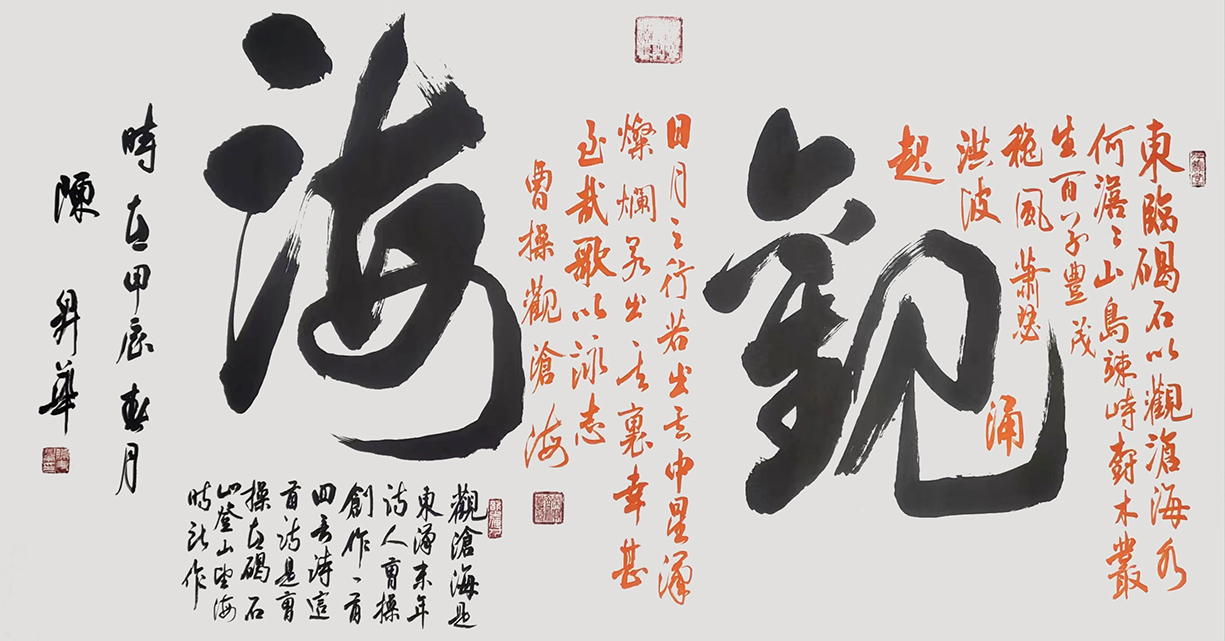 東臨碣石以觀滄海水
何澹々山島竦峙樹木叢
生百草豐茂
穐風蕭瑟
洪波涌
起
觀
日月之行若出其中星漢
燦爛若出其裏幸甚
至哉歌以詠志
曹操觀滄海
海
觀滄海是
東漢末年
詩人曹操
創作一首
四言詩這
首詩是曹
操在碣石
山登山望海
時所作
時在甲辰春月
陳昇華